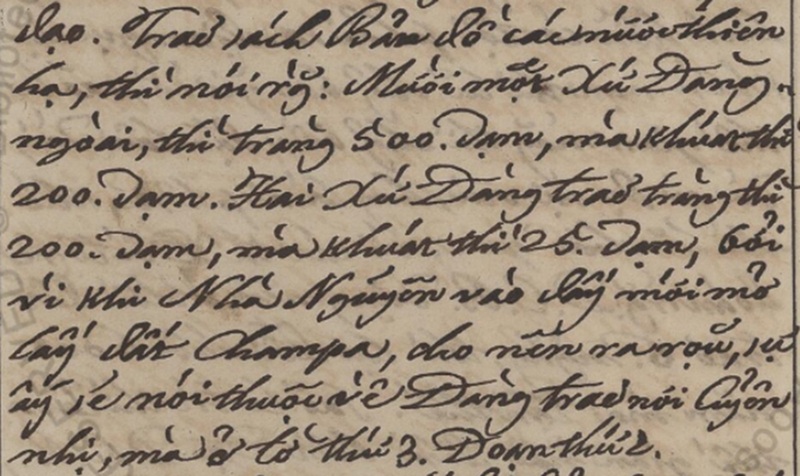 đạo. Traơ sách Bản đồ các nước thiên
hạ, thì nói rằ᷄: Mười một Xứ Đàng
ngoài, thì tràng 500. dạm, mà khuát thì
200. dạm. Hai Xứ Đàng traơ tràng thì
200. dạm, mà khuát thì 25. dạm, bởi
vì khi Nhà Nguyễn vào đấy mới mở
lấy đất Champa, cho nên ra rợũ, sự
ấy sẽ nói thuốc về Đàng traơ nói Cuyển
nhị, mà ở tờ thứ 3. Đoạn thứ 2.